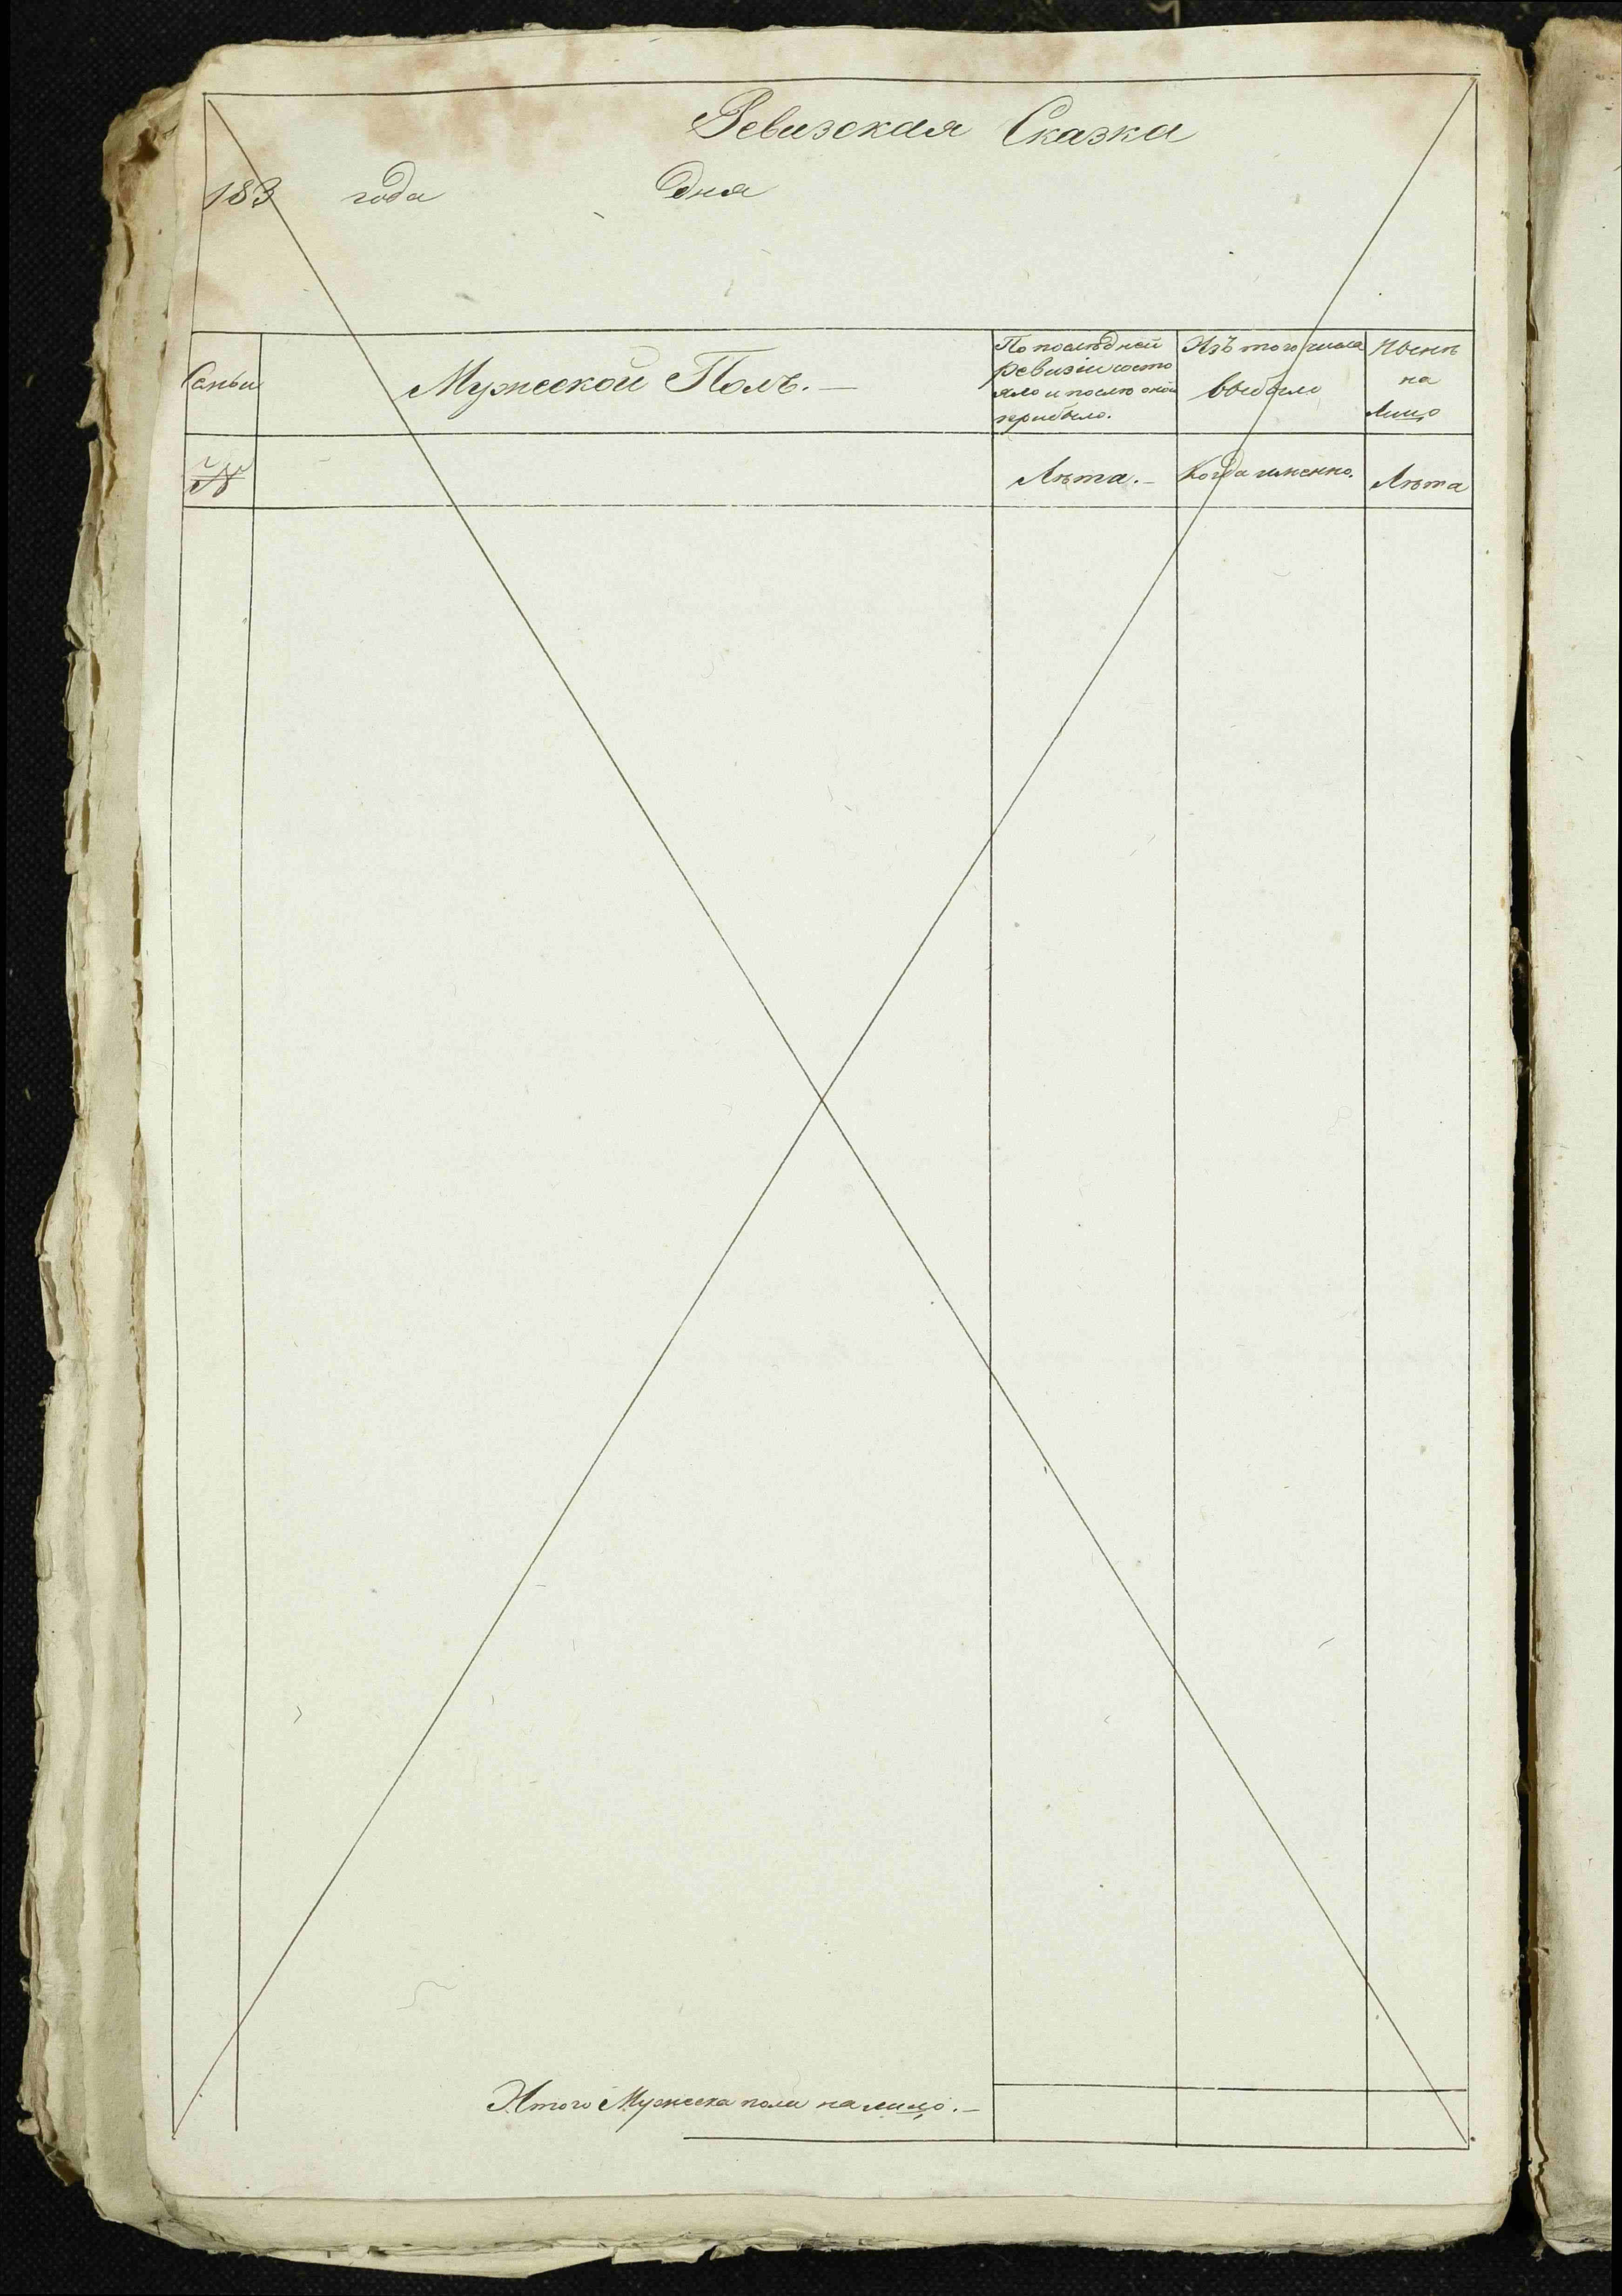 Ревизская Сказка
183 года Дня
Семьи
Мужеской Полъ. —
По последней
ревизіи состо
яло и после оной
прибыло.
Изъ того числа
выбыло
Ныне
на
Лицо
№
Лѣта. —
Когда именно.
Лѣта
Итого Мужеска пола на лицо. —